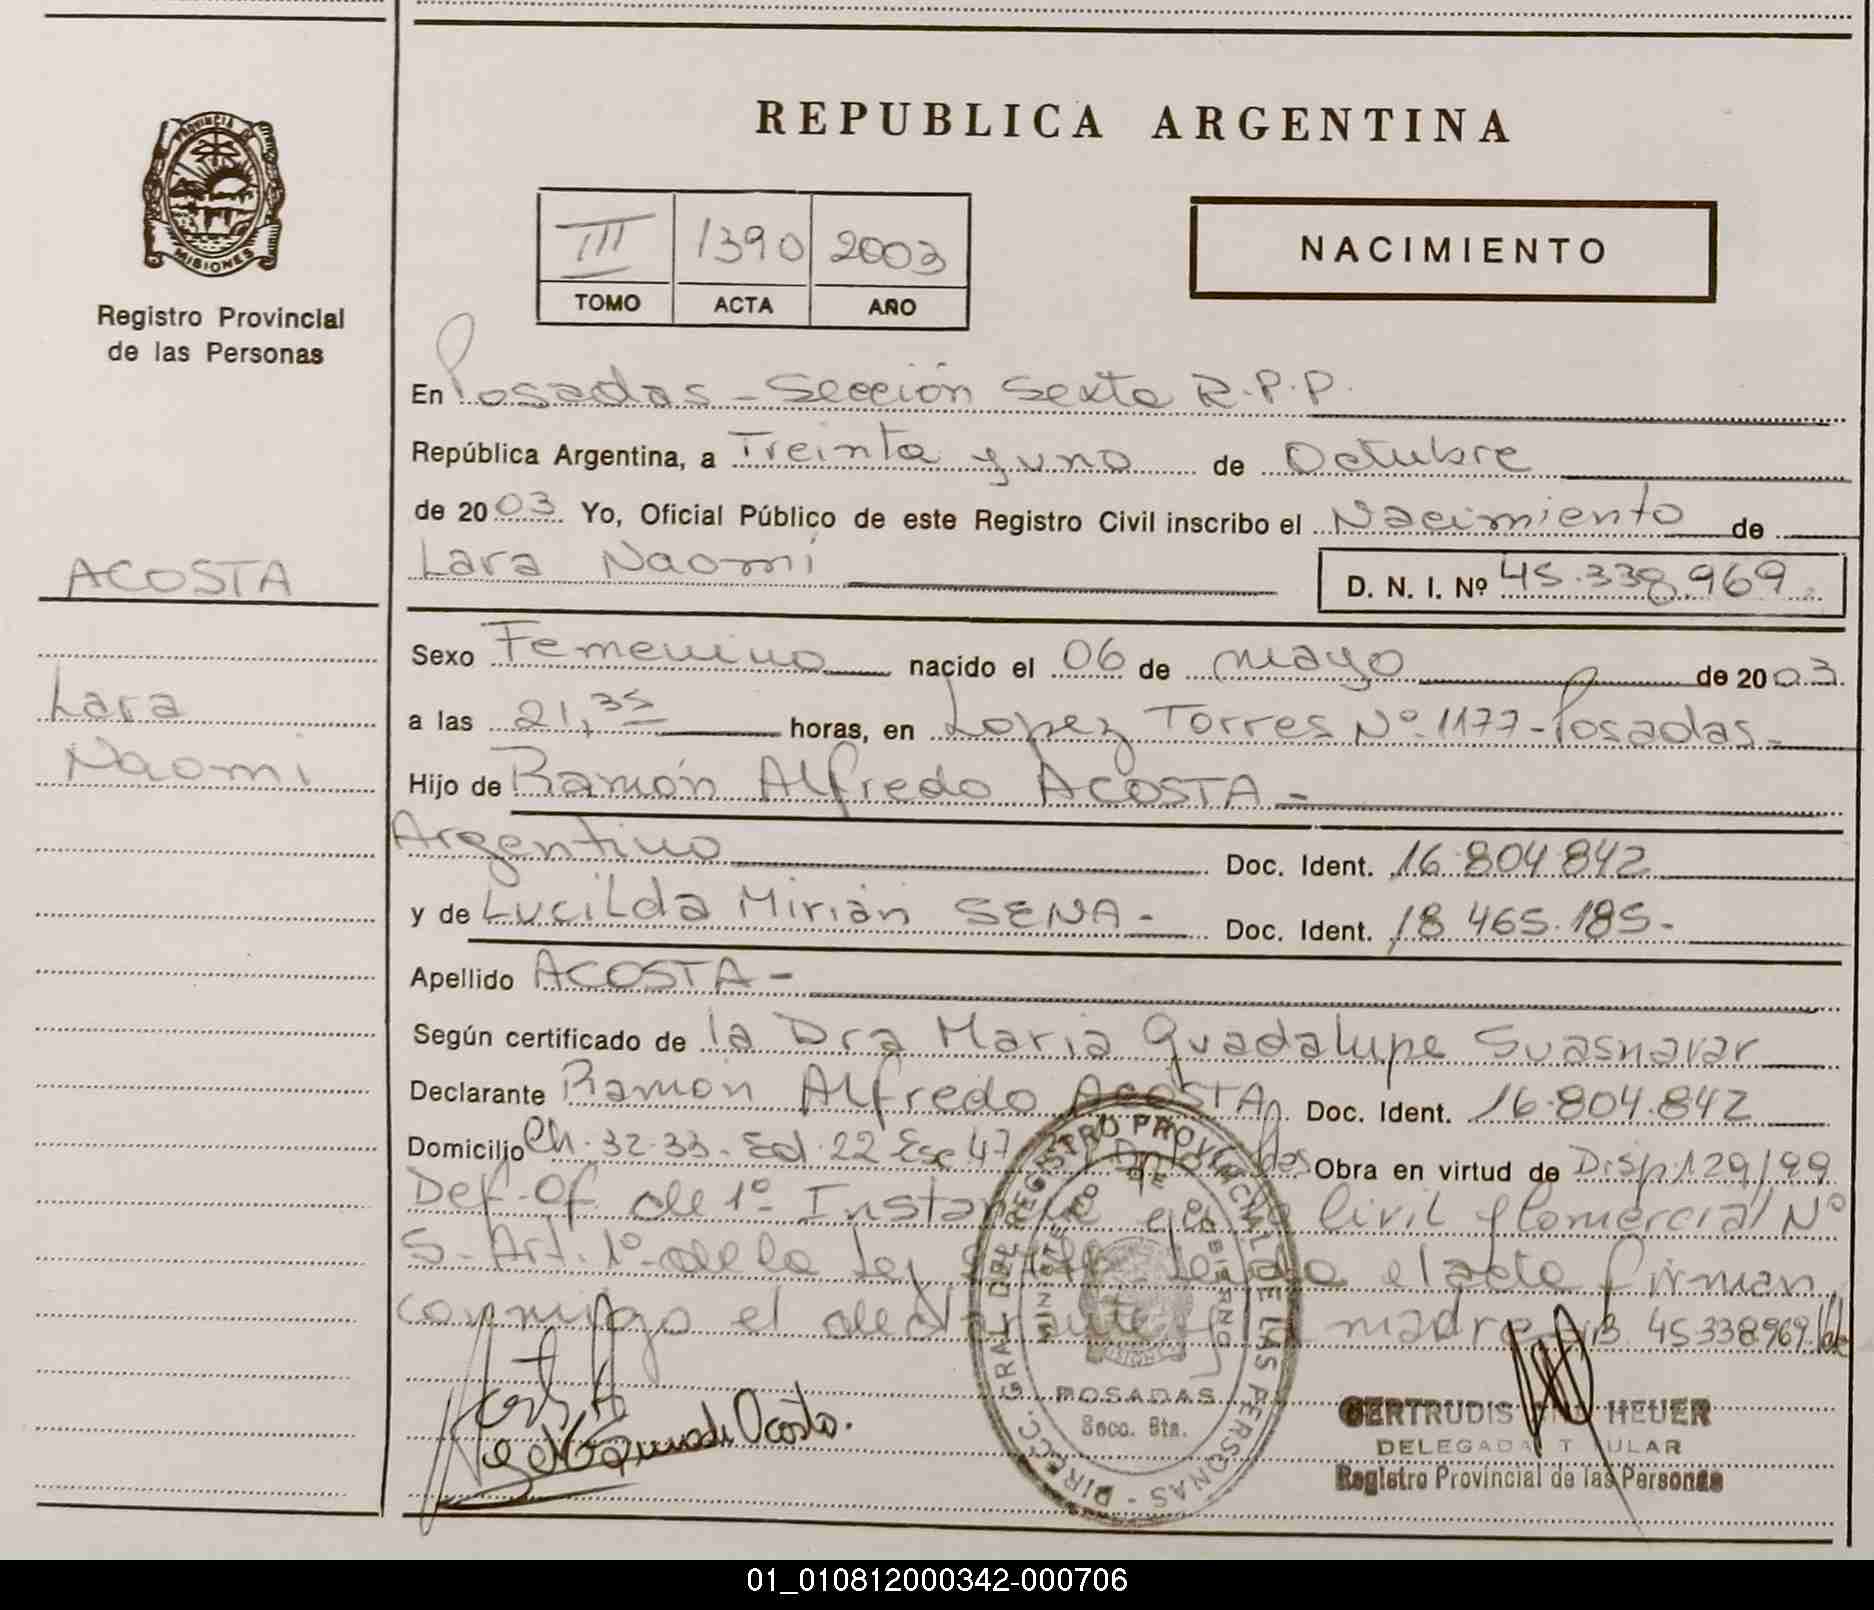 REPUBLICA ARGENTINA
PROVINCIA DE
MISIONES
Registro Provincial
de las Personas
III 1390 2003
TOMO ACTA AÑO
NACIMIENTO
En Posadas - Sección Sexta R.P.P.
República Argentina, a Treinta y uno de Octubre
de 2003 Yo, Oficial Público de este Registro Civil inscribo el Nacimiento de
Lara Naomí D. N. I. Nº 45.338.969
ACOSTA
Lara
Naomi
Sexo Femenino nacido el 06 de mayo de 2003.
a las 21,35 horas, en Lopez Torres Nº 1177 - Posadas -
Hijo de Ramón Alfredo ACOSTA -
Argentino Doc. Ident. 16.804.842
y de Lucilda Mirian SENA - Doc. Ident. 18.465.185 -
Apellido ACOSTA -
Según certificado de la Dra Maria Guadalupe Suasnavar
Declarante Ramón Alfredo ACOSTA Doc. Ident. 16.804.842
Domicilio Ch. 32-33 - Ed. 22 Esc 47 Obra en virtud de Disp. 129/99
Def. Of. de 1º Instancia en lo Civil y Comercial Nº
5 - Art. 1º de la Ley leido el acta firman
conmigo el declarante y la madre 45.338.969
DIRECC. GRAL DEL REGISTRO PROVINCIAL DE LAS PERSONAS -
MINISTERIO DE GOBIERNO
POSADAS
Secc. 6ta.
GERTRUDIS HEUER
DELEGADA TITULAR
Registro Provincial de las Personas
01_010812000342-000706